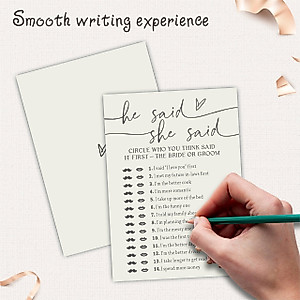 Smooth writing experience
he said
she said
CIRCLE WHO YOU THINK SAID
IT FIRST – THE BRIDE OR GROOM
1. I said "I love you" first
2. I met my future in laws first
3. I'm the better cook
4. I'm more romantic
5. I take up more of the bed
6. I'm the funny one
7. I told my family about
8. I'm planning the
9. I'm the messy
10. I was the first
11. I'm the better
12. I'm the better d
13. I take longer to get ready
14. I spend more money